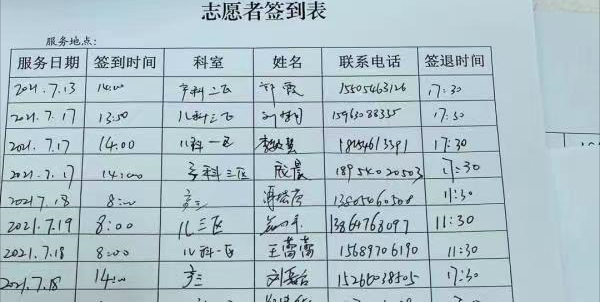 志愿者签到表
服务地点:
服务日期 签到时间 科室 姓名 联系电话 签退时间
2021.7.13 14:00 产科二区 15505463126 17:30
2021.7.17 13:50 儿科三区 15963088355 17:30
2021.7.17 14:00 儿科一区 18254613391 17:30
2021.7.17 14:00 产科三区 成晨 18954020503 17:30
2021.7.18 8:00 产三 13805060508 11:30
2021.7.19 8:00 儿三区 13864768097 11:30
2021.7.18 8:00 儿科一区 王蒿蒿 15689706190 11:30
2021.7.18 14:00 产三 15266038505 17:30